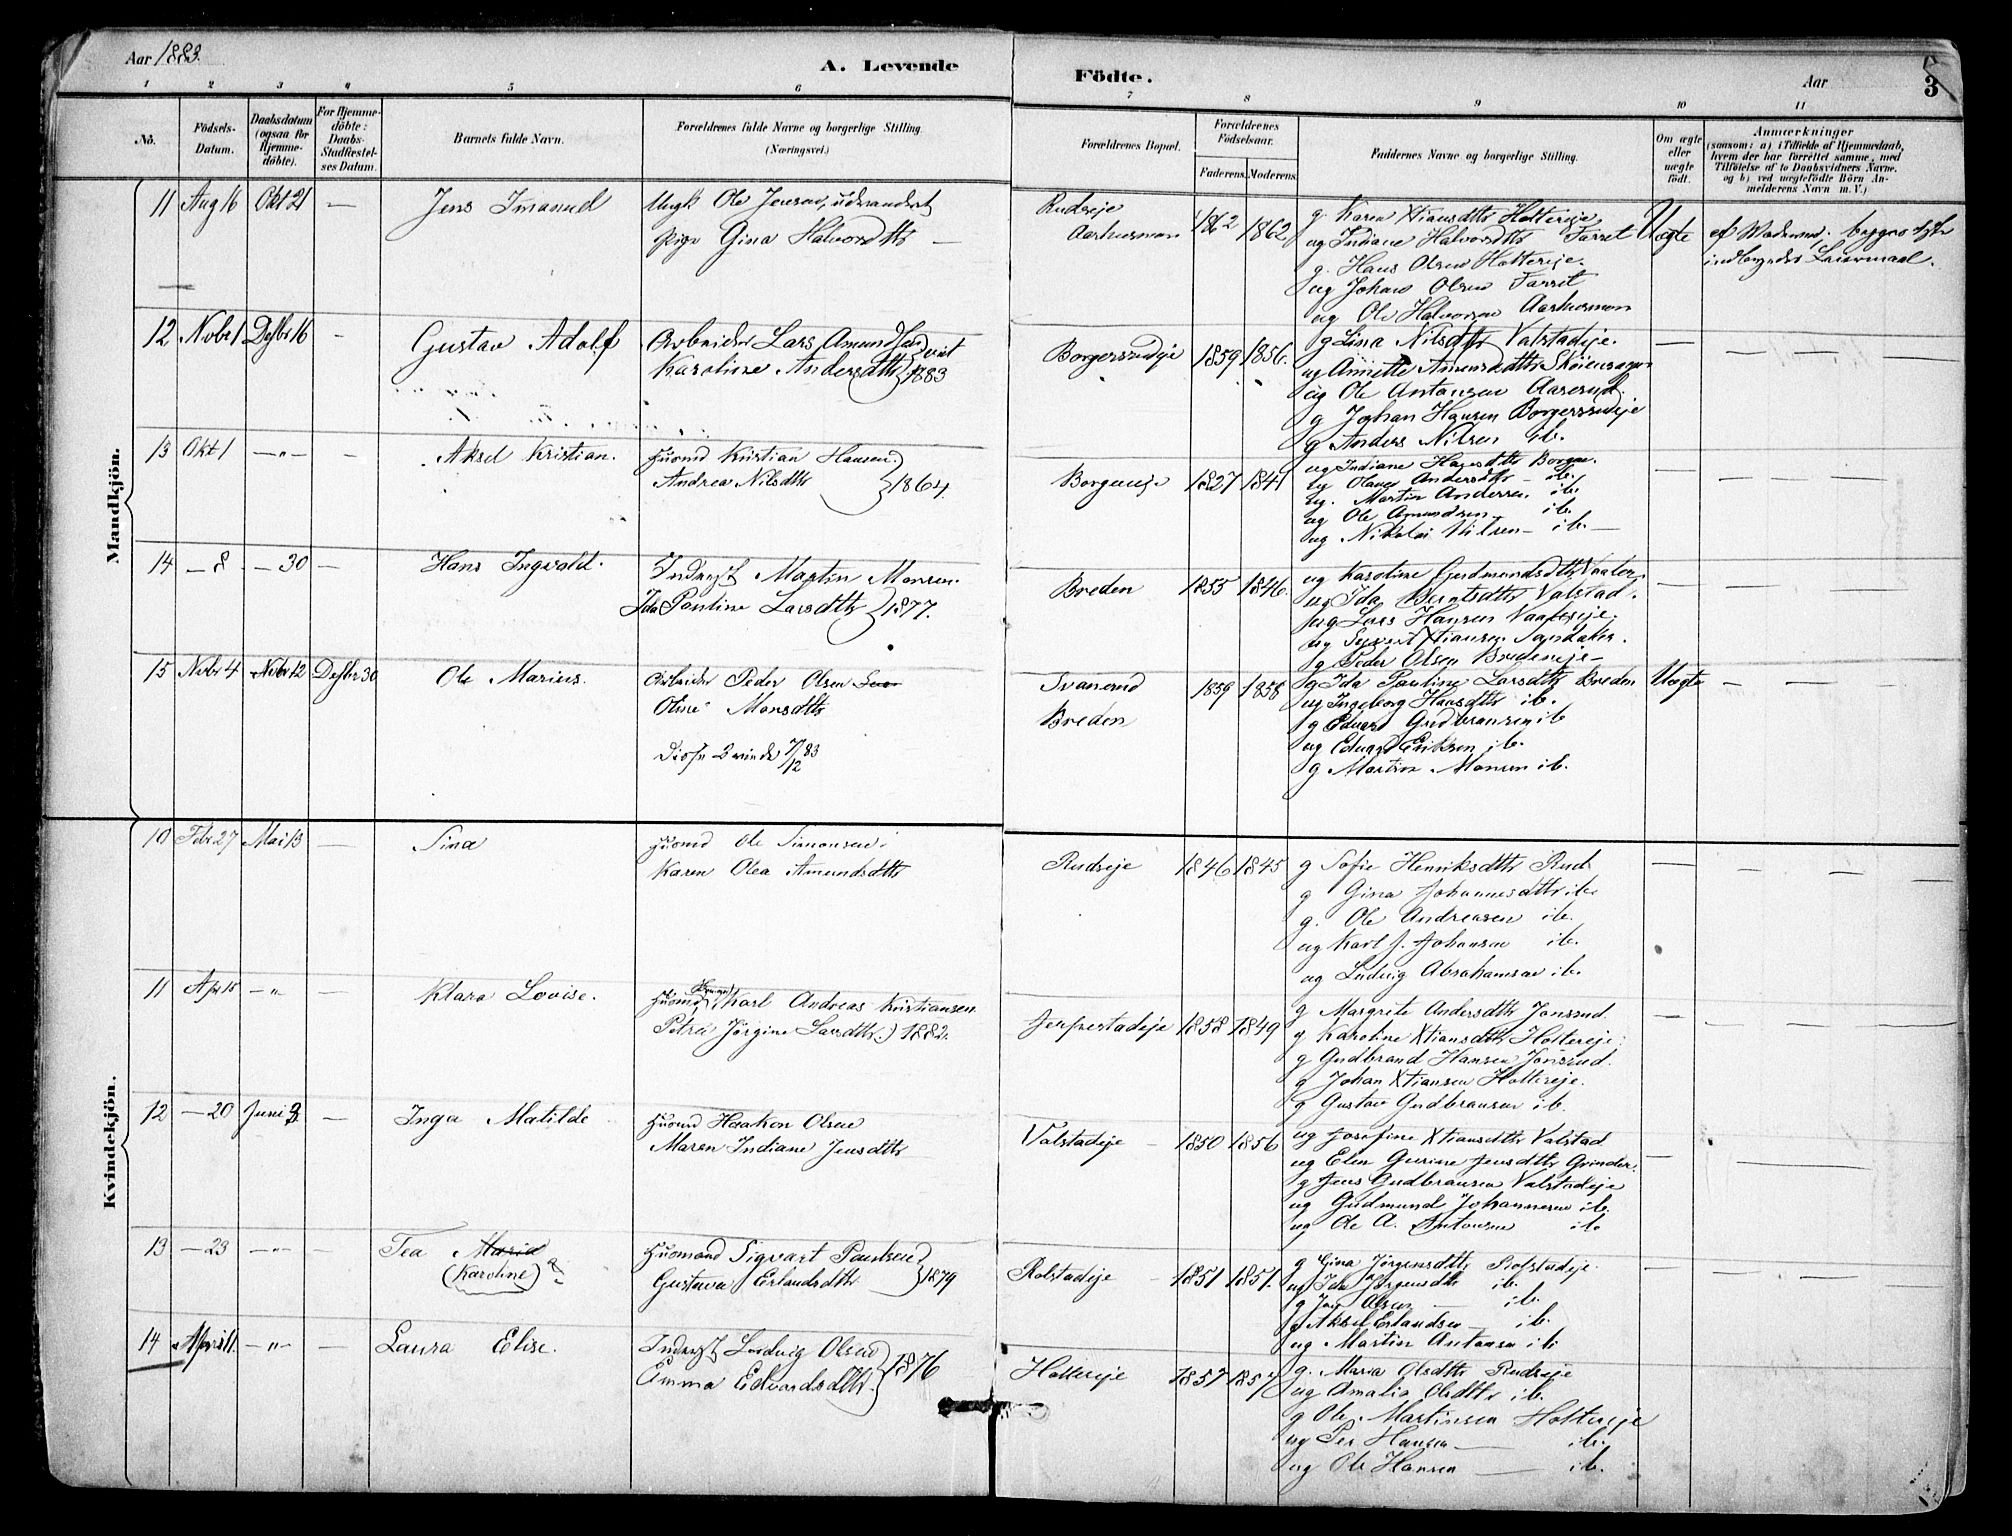 Aar 1883.
A. Levende
Födte.
Aar
3
1 2 3 4 5 6 7 8 9 10 11
No.
Födsels-Datum.
Daabsdatum (ogsaa for Hjemme-döbte).
For Hjemme-döbte: Daabs-Stadfæstel-ses Datum.
Barnets fulde Navn.
Forældrenes fulde Navne og borgerlige Stilling.
(Næringsvei.)
Forældrenes Bopæl.
Forældrenes Födselsaar.
Faderens. Moderens.
Faddernes Navne og borgerlige Stilling.
Om ægte eller uægte födt.
Anmærkninger
(saasom: a) i Tilfælde af Hjemmedaab, hvem der har forrettet samme, med Tilföielse af to Daabsvidners Navne. og b) ved uægtefödte Börn An-melderens Navn m. V.)
Mandkjön.
11 Aug 16 Okt 21 — Jens Imanuel
Ungk Ole Jensen, udvandret
Pige Gina Halvorsdtr —
Rudseje
Aarhusmoen 1862 1862
g. Karen Xtiansdtr Holtereje
ug Indiane Halvorsdtr Farset
g. Hans Olsen Holtereje.
ug Johan Olsen Farset
ug Ole Halvorsen Aarhusmoen
Uægte
12 Nvbr 1 Desbr 16 - Gustav Adolf
Arbeider Lars Amundsen
Karoline Andersdtr } viet 1883
Borgersrudeje 1859 1856.
g Lina Nilsdtr Valstadeje.
ug Annette
ug Ole Antonsen Aaserud.
g Johan Hansen Borgersrudeje
g Anders Nilsen ib.
13 Okt 1 —"— - Aksel Kristian.
Huusmd Kristian Hansen
Andrea Nilsdtr } 1864.
Borgeneje 1827 1841
ug Indiane Hansdtr Borgen.
ug Andersdtr ib.
ug. Martin Andersen ib.
ug Ole Amundsen — ib.
ug Nikolai Nilsen — ib. —
14 — 8 — 30 — Hans Ingvald.
Inderst Martin Monsen.
Ida Pauline Larsdtr } 1877.
Breden 1855 1846.
ug Karoline Gudmundsdtr Vaaler
ug Ida Berntsdtr Valstad.
ug Lars Hansen
ug Syvert Xtiansen Sandaker.
g Peder Olsen Bredeneje —
15 Nvbr 4 Nvbr 12 Desbr 30 Ole Marius.
Arbeider Peder Olsen
Oline Monsdtr
7/12 83
Svanerud
Breden 1859 1858
g Ida Pauline Larsdtr Breden
ug Ingeborg Hansdtr ib.
g Edvard Gudbransen ib
ug Edvard Eriksen ib.
g Martin Monsen ib.
Uægte
Kvindekjön.
10 Febr 27 Mai 13 — Sina
Huusmd Ole Simonsen.
Karen Olea Amundsdtr
Rudseje 1846 1845
g Sofie Henriksdtr Rud
g Gina Johannesdtr ib.
g. Ole Andreasen ib.
ug Karl J. Johansen ib.
ug Ludvig Abrahamsen ib.
11 Apr 15 —"— — Klara Lovise.
Huusmd Karl Andreas Kristiansen
Petra Jørgine Larsdtr.) 1882.
Jerpstadeje 1858 1849
g Margrete Andersdtr Jonsrud.
g Karoline Xtiansdtr Holtereje.
g Gudbrand Hansen Jonsrud.
g Johan Xtiansen Holtereje.
g Gustav Gudbransen ib.
12 — 20 Juni 3 — Inga Matilde
Huusmd Haakon Olsen
Maren Indiane Jensdtr
Valstadeje 1850 1856
ug Josefine Xtiansdtr Valstad
ug Elen Gurine Jensdtr Grinder.
g Jens Gudbransen Valstadeje
ug Gudmund Johannesen ib.
ug Ole A. Antonsen ib.
13 — 23 —"— — Tea Maria
(Karoline)
Huusmand Sigvart Paulsen
Gustava Erlandsdtr } 1879
Rolstadeje 1851 1851.
g Gina Jørgensdtr Rolstadeje.
ug Ida Jørgensdtr ib.
g Olsen — ib.
g Aksel Erlandsen — ib.
ug Martin Antonsen ib
14 April 11. —"— — Laura Elise.
Inderst Ludvig Olsen
Emma Edvardsdtr. } 1876
Holtereje 1857 1857
g. Maria Olsdtr Rudseje
ug Amalie Olsdtr ib.
g Ole Martinsen Holtereje
ug Per Hansen — ib.
ug Ole Hansen — ib.